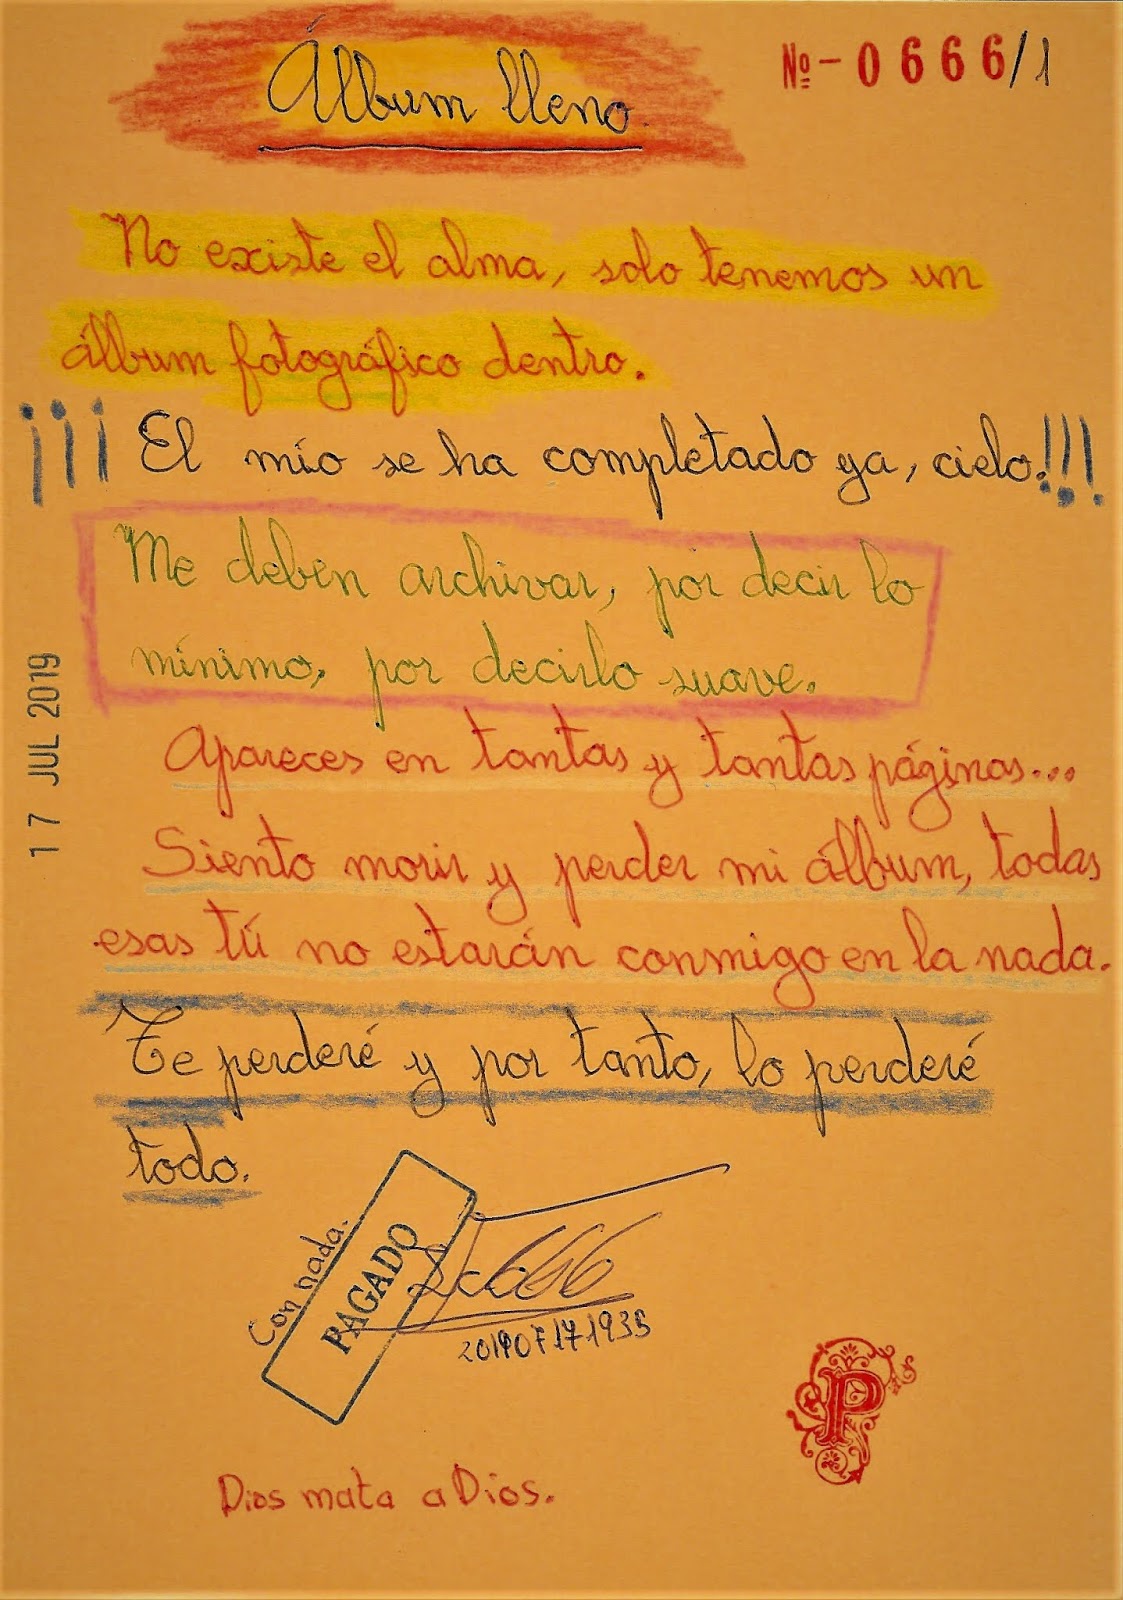 Álbum lleno.
Nº - 0666/1
No existe el alma, solo tenemos un
álbum fotográfico dentro.
¡¡¡ El mío se ha completado ya, cielo.!!!
Me deben archivar, por decir lo
mínimo, por decirlo suave.
Apareces en tantas y tantas páginas...
Siento morir y perder mi álbum, todas
esas tú no estarán conmigo en la nada.
Te perderé y por tanto, lo perderé
todo.
17 JUL 2019
Con nada.
PAGADO
666
201907171935
P
Dios mata a Dios.